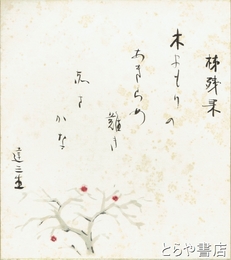 柿残果
木まもりの
あきらめ
難き
点る
かな
達三生
とらや書店